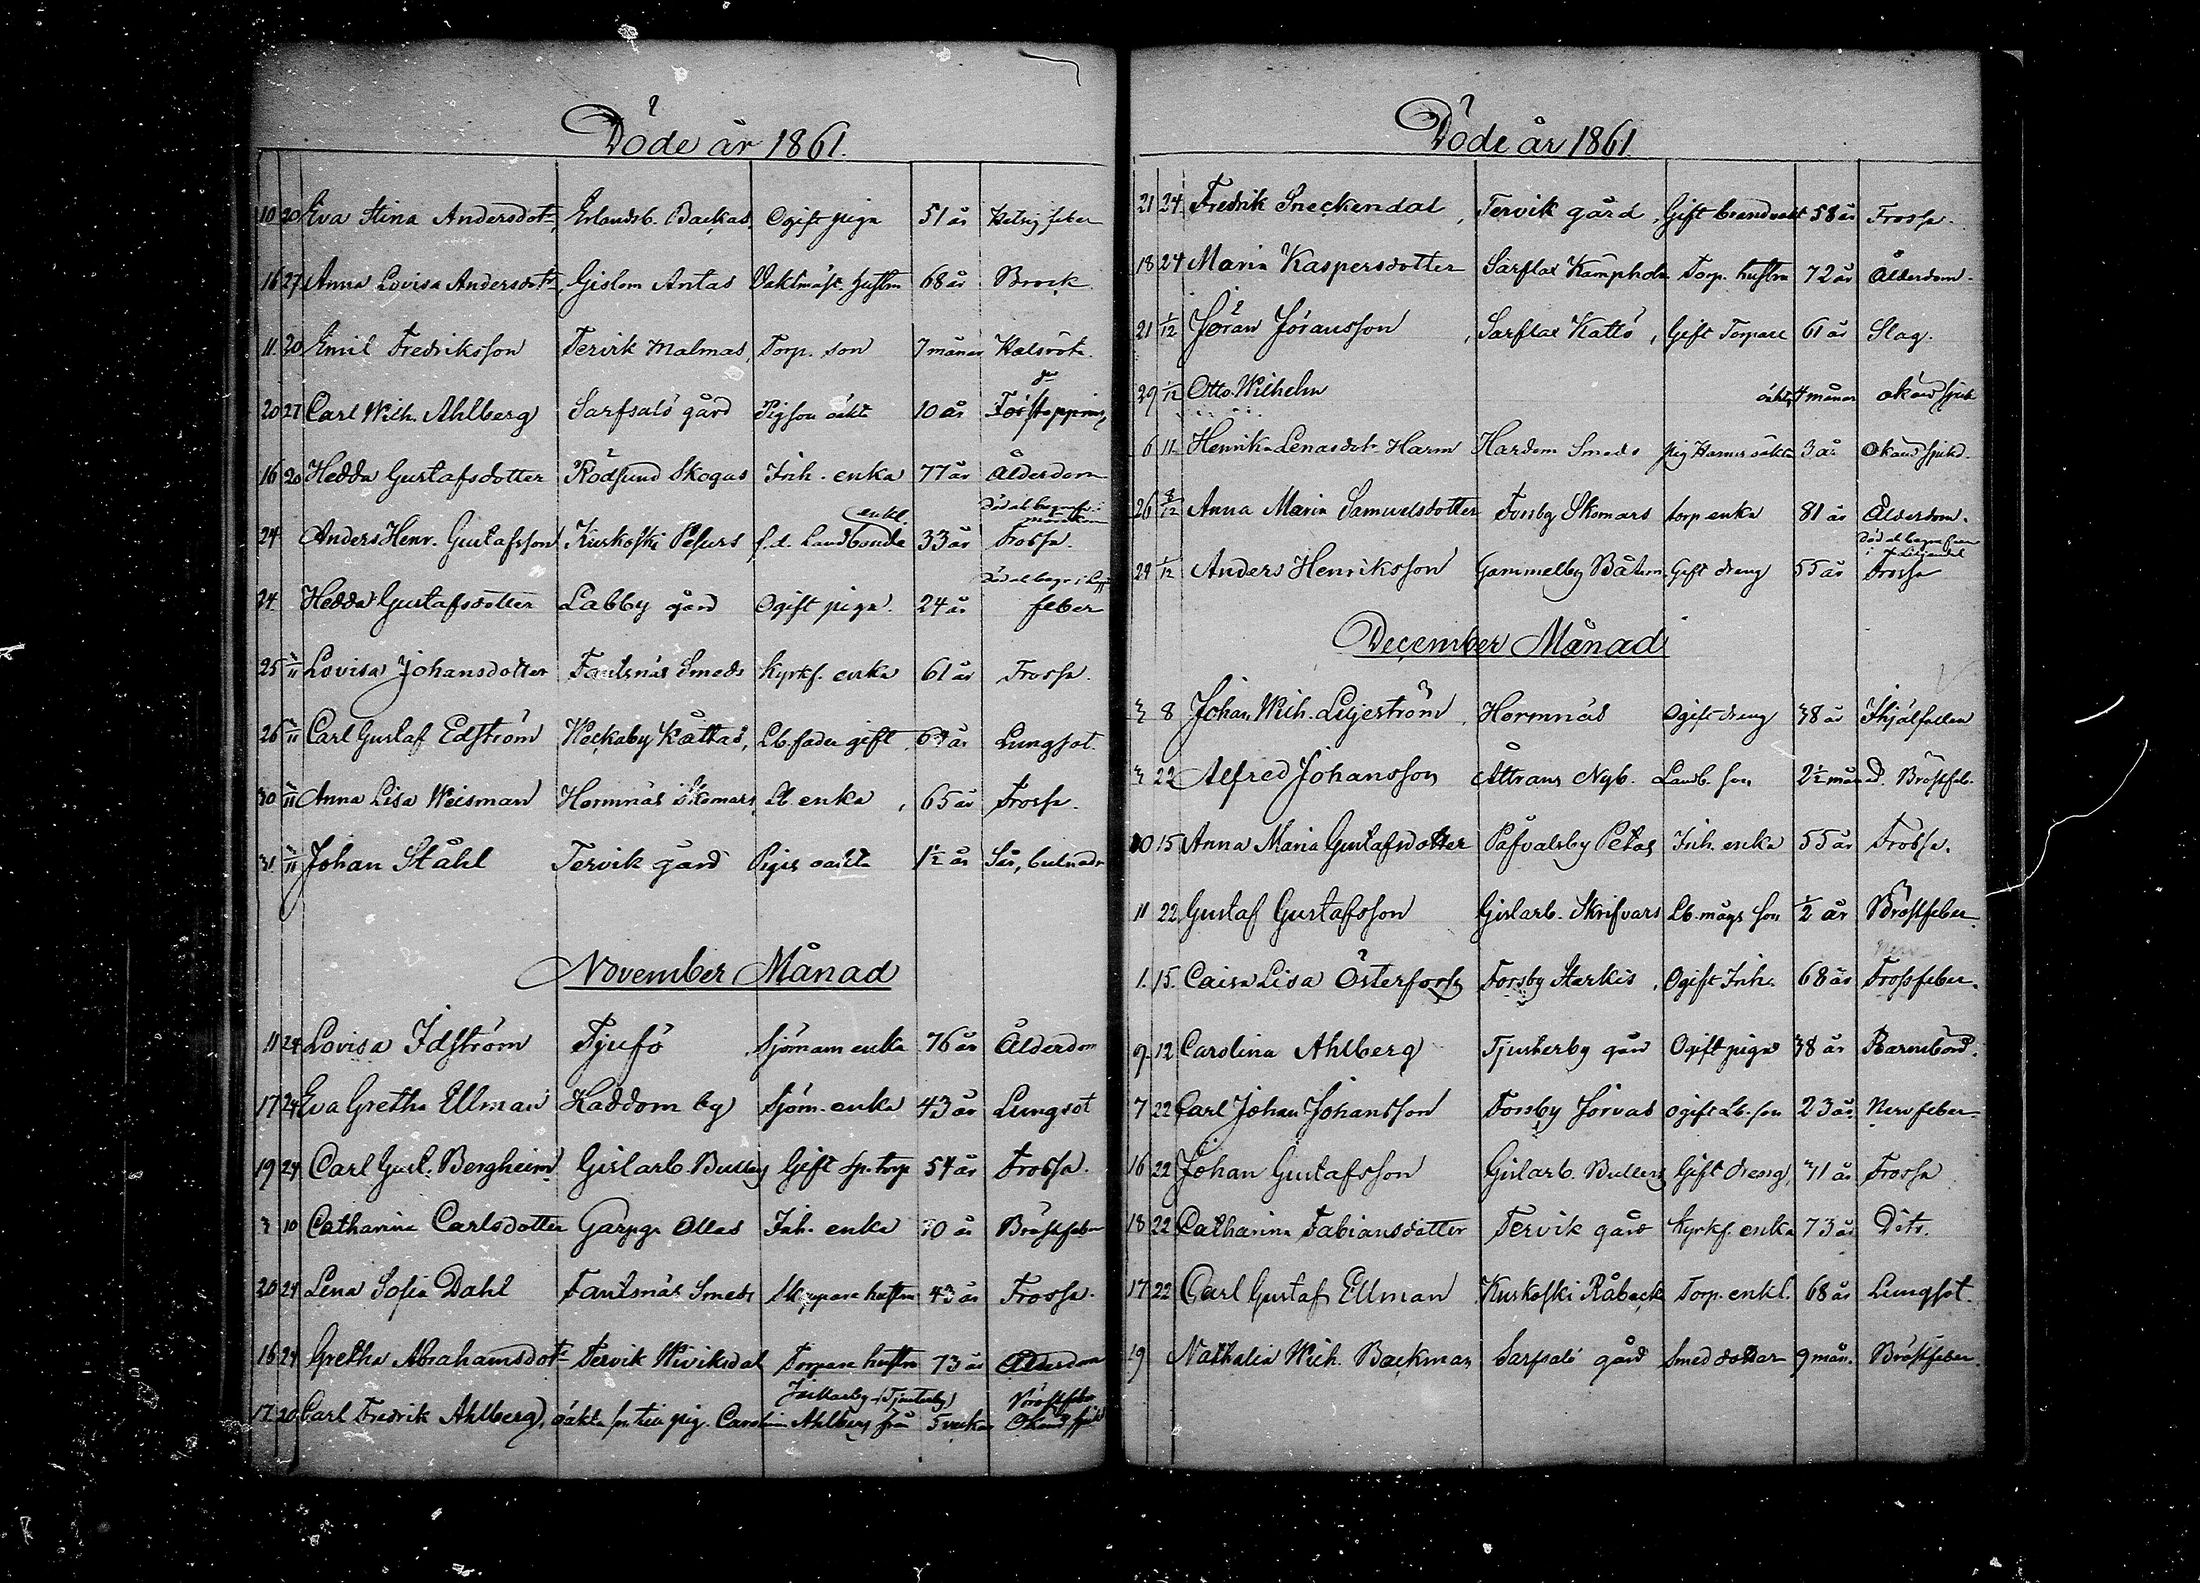 Döde år 1861.
10 20 Eva Stina Andersdotr, Erlandsb. Backas, Ogift piga 51 år Hetsig feber
16 27 Anna Lovisa Andersdotr, Gislom Antas Vaktmäst. hustru 68 år Brock
11 20 Emil Fredriksson Tervik Malmas, Torp. son 7 månar Halsröta
20 27 Carl Wilh. Ahlberg Sarfsalö gård Pig son oäkta 10 år Förstoppning
16 20 Hedda Gustafsdotter Rödsund Skogas Inh. enka 77 år Ålderdom
enkl. Död ok begrafv. i
24 Anders Henr. Gustafsson Kuskoski Pesurs f.d. Landbonde 33 år Frossa.
Död ok begr. i
24 Hedda Gustafsdotter Labby gård Ogift piga 24 år feber
25 3/11 Lovisa Johansdotter Fantsnäs Smeds Kyrkf. enka 61 år Frossa.
26 3/11 Carl Gustaf Edström Weckaby Kåttas, Lb. fader gift 69 år Lungsot.
30 3/11 Anna Lisa Weisman Hormnäs Skomars, Lb enka, 65 år Frossa.
31 3/11 Johan Ståhl Tervik gård Pigas oäkta 1½ år Sår, bulnade
November Månad
11 24 Lovisa Idström Tjusö Sjömans enka 76 år Ålderdom
17 24 Eva Gretha Ellman Haddom by Sjöm. enka 43 år Lungsot
19 24 Carl Gust. Bergheim Gislarb. Bullers Gift sp. torp 54 år Frossa.
3 10 Catharina Carlsdotter Garpgr. Ollas Inh. enka 30 år Bröstfeber
20 24 Lena Sofia Dahl Fantsnäs Smeds Skeppare hustru 43 år Frossa.
16 24 Gretha Abrahamsdotr Tervik Wiviksdal Torpare hustru 73 år Ålderdom
(Tjusterby) Bröstfeber
17 20 Carl Fredrik Ahlberg, oäkta son till pig. Carolina Ahlberg från 5 veckor Okänd sjukd.
Döde år 1861.
21 24 Fredrik Sneckendal, Tervik gård, Gift brandvakt 58 år Frossa.
18 24 Maria Kaspersdotter Sarflax Kampholm Torp. hustru 72 år Ålderdom.
21 1/12 Jöran Jöransson, Sarflax Kattö, Gift Torpare 61 år Slag.
29 1/12 Otto Wilhelm oäkta 4 månar okänd sjukd
6 11 Henrika Lenasdotr Harm Hardom Smeds pig Harms oäkta 3 år Okänd sjukd.
26 8/12 Anna Maria Samuelsdotter Forsby Skomars torp enka 81 år Ålderdom.
Död ok begrafven i Liljendal
24 1/12 Anders Henriksson Gammelby Båtsm. Gift dreng 55 år Frossa
December Månad
3 8 Johan Wilh. Liljeström, Hormnäs Ogift dreng 38 år Ihjälfallen
3 22 Alfred Johansson Åttrans Nyb. Landb. son 2½ månad. Bröstfeb.
10 15 Anna Maria Gustafsdotter Påfvalsby Petas Inh. enka 55 år Frossa.
11 22 Gustaf Gustafsson Gislarb. Skrifvars Lb. mågs son ½ år Bröstfeber
1. 15. Caisa Lisa Österforss Forsby Starkis, Ogift Inh. 68 år Frossfeber.
9 12 Carolina Ahlberg Tjusterby gård Ogift piga 38 år Barnsbörd.
7 22 Carl Johan Johansson Forsby Jorvas Ogift Lb. son 23 år. Nervfeber
16 22 Johan Gustafsson Gislarb. Bullers Gift dreng 71 år Frossa
18 22 Catharina Fabiansdotter Tervik gård Kyrkf. enka 73 år Dito.
17 22 Carl Gustaf Ellman Kuskoski Råback Torp. enkl. 68 år Lungsot.
19 Nathalia Wilh. Backman Sarfsalö gård Smed dotter 9 mån. Bröstfeber.